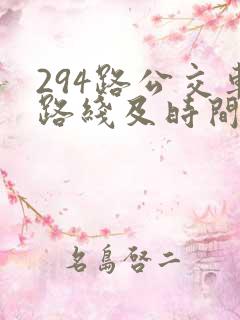 294路公交車
路綫及時間
名島啓二